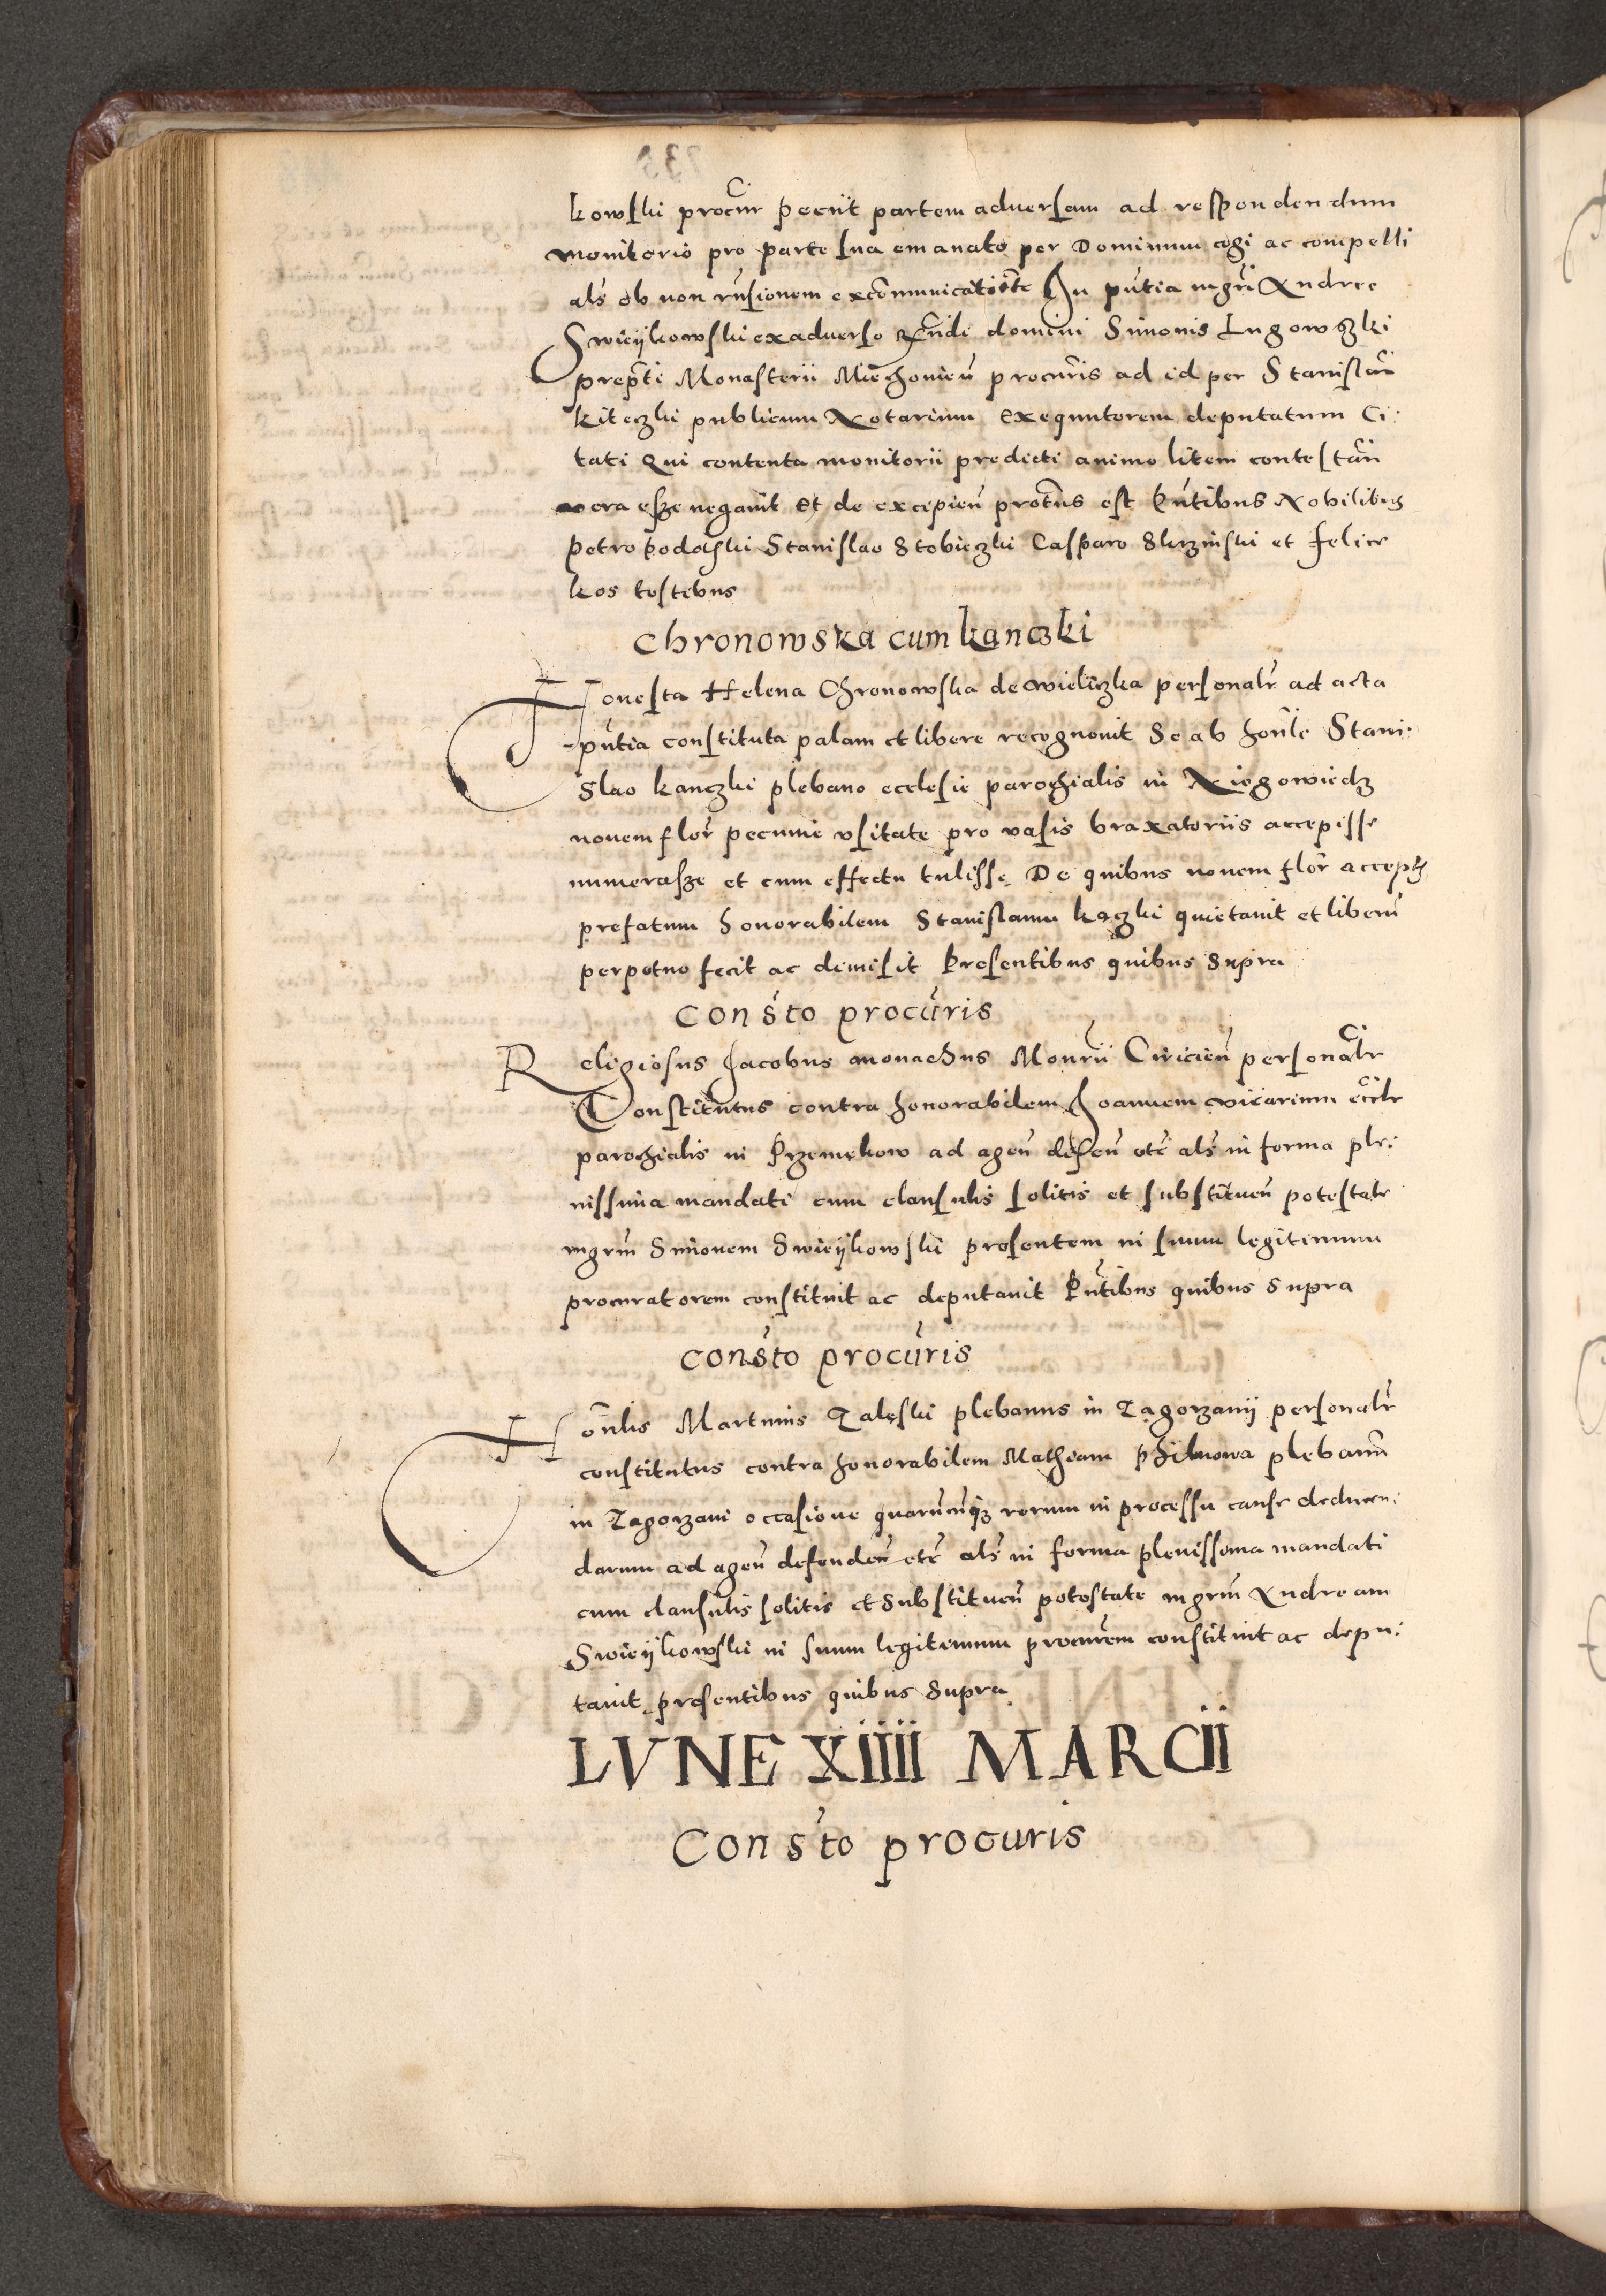 kowski procur petit partem adversam ad respondendum
monitorio pro parte sua emanato per Dominum cogi ac compelli
als ob non rnsionem excommunicari In pntia mgri Andree
Swieykowski ex adverso Rndi domini Simonis Lugowszki
prepti Monasterii Miechovien procuris ad id per Stanislaum
Kiteczki publicum Notarium exequutorem deputatum Ci:
tati Qui contenta monitorii predicti animo litem contestan
vera esze negavit Et de excipien protus est Pntibus Nobilibus
Petro Podolski Stanislao Stobieczki Casparo Skrzinski et Felice
kos testibus
Chronowska cum kanczki
Honesta Helena Chronowska de wieliczka personalr ad acta
pntia constituta palam et libere recognovit Se ab honli Stani:
slao kanczki plebano ecclesie parochialis in Niegowiedz
novem flor pecunie usitate pro vasis braxatoriis accepisse
numerasze et cum effectu tulisse De quibus novem flor acceptis
prefatum honorabilem Stanislaum kączki quietavit et liberu
perpetuo fecit ac dimisit Presentibus quibus supra
Consto procuris
Religiosus Jacobus monachus Monrii Ciricien personalr
Constitutus contra honorabilem Joannem vicarium eccle
parochialis in Przemękow ad agen defen etc als in forma ple:
nissima mandati cum clausulis solitis et substituen potestate
mgrm Simonem Swieykowski presentem in suum legitimum
procuratorem constituit ac deputavit Pntibus quibus supra
Consto procuris
Honlis Martinus Zalęski plebanus in Zagorzanij personalr
constitutus contra honorabilem Mathiam Philuowa plebanu
in Zagorzani occasione quarumcunque rerum in processu cause deducen:
darum ad agen defenden etc als in forma plenissima mandati
cum clausulis solitis et substituen potestate mgrm Andream
Swieykowski in suum legitimum procurem constituit ac depu:
tavit presentibus quibus supra
LVNE XIIII MARCII
Consto procuris